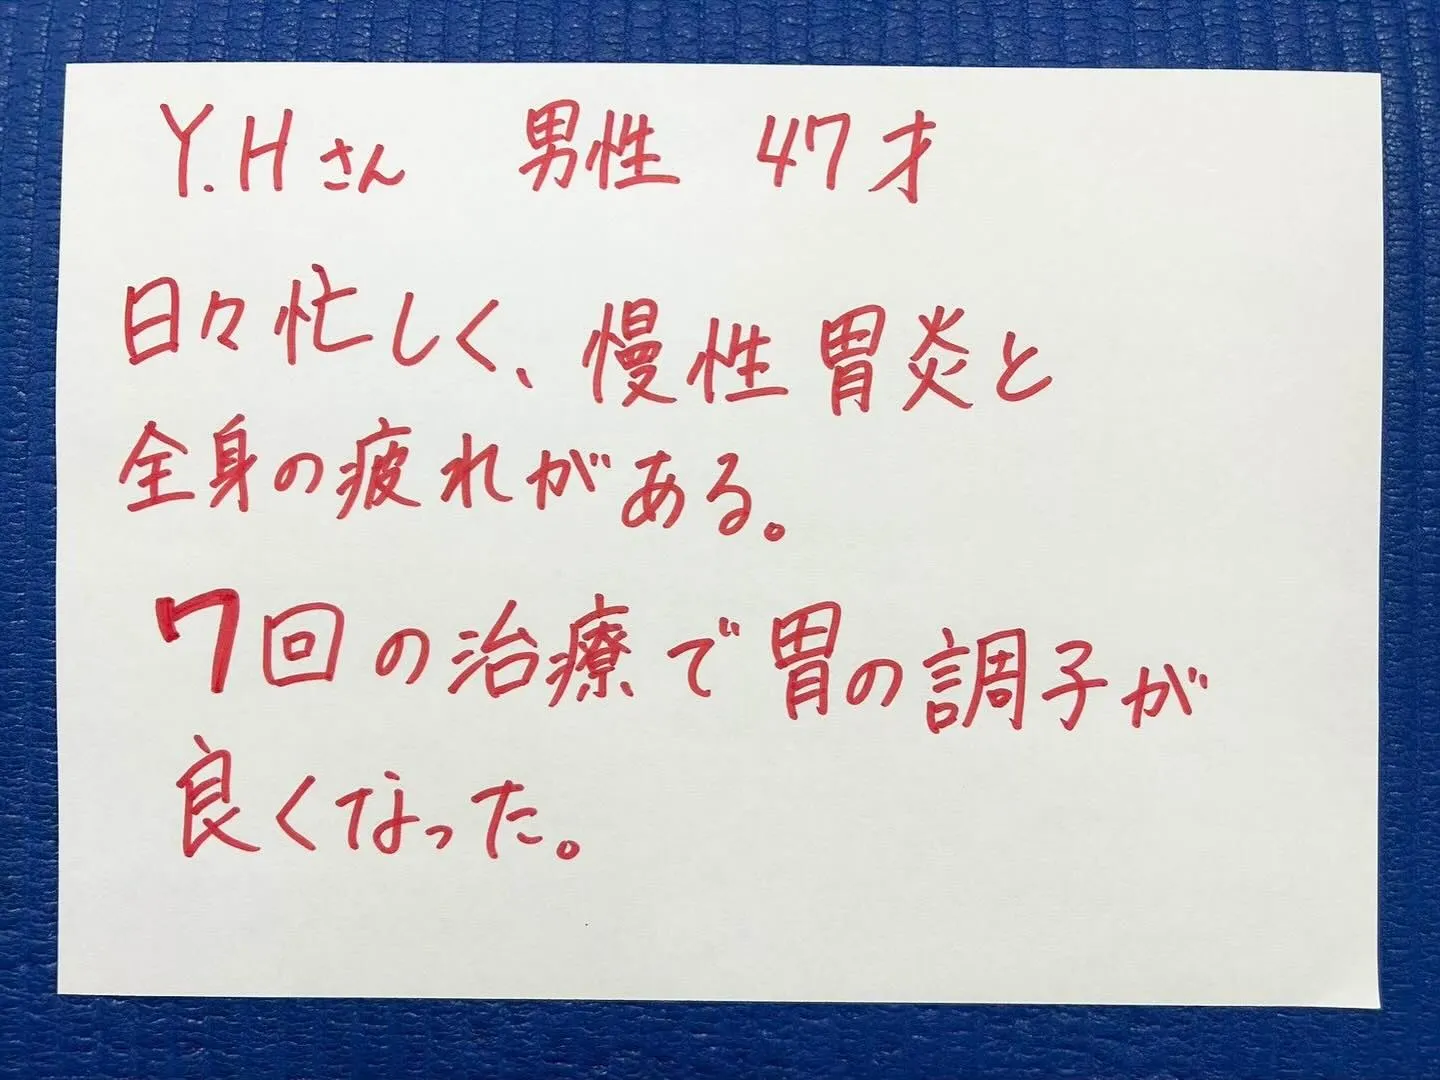 Y.Hさん 男性 47才
日々忙しく、慢性胃炎と
全身の疲れがある。
7回の治療で胃の調子が
良くなった。